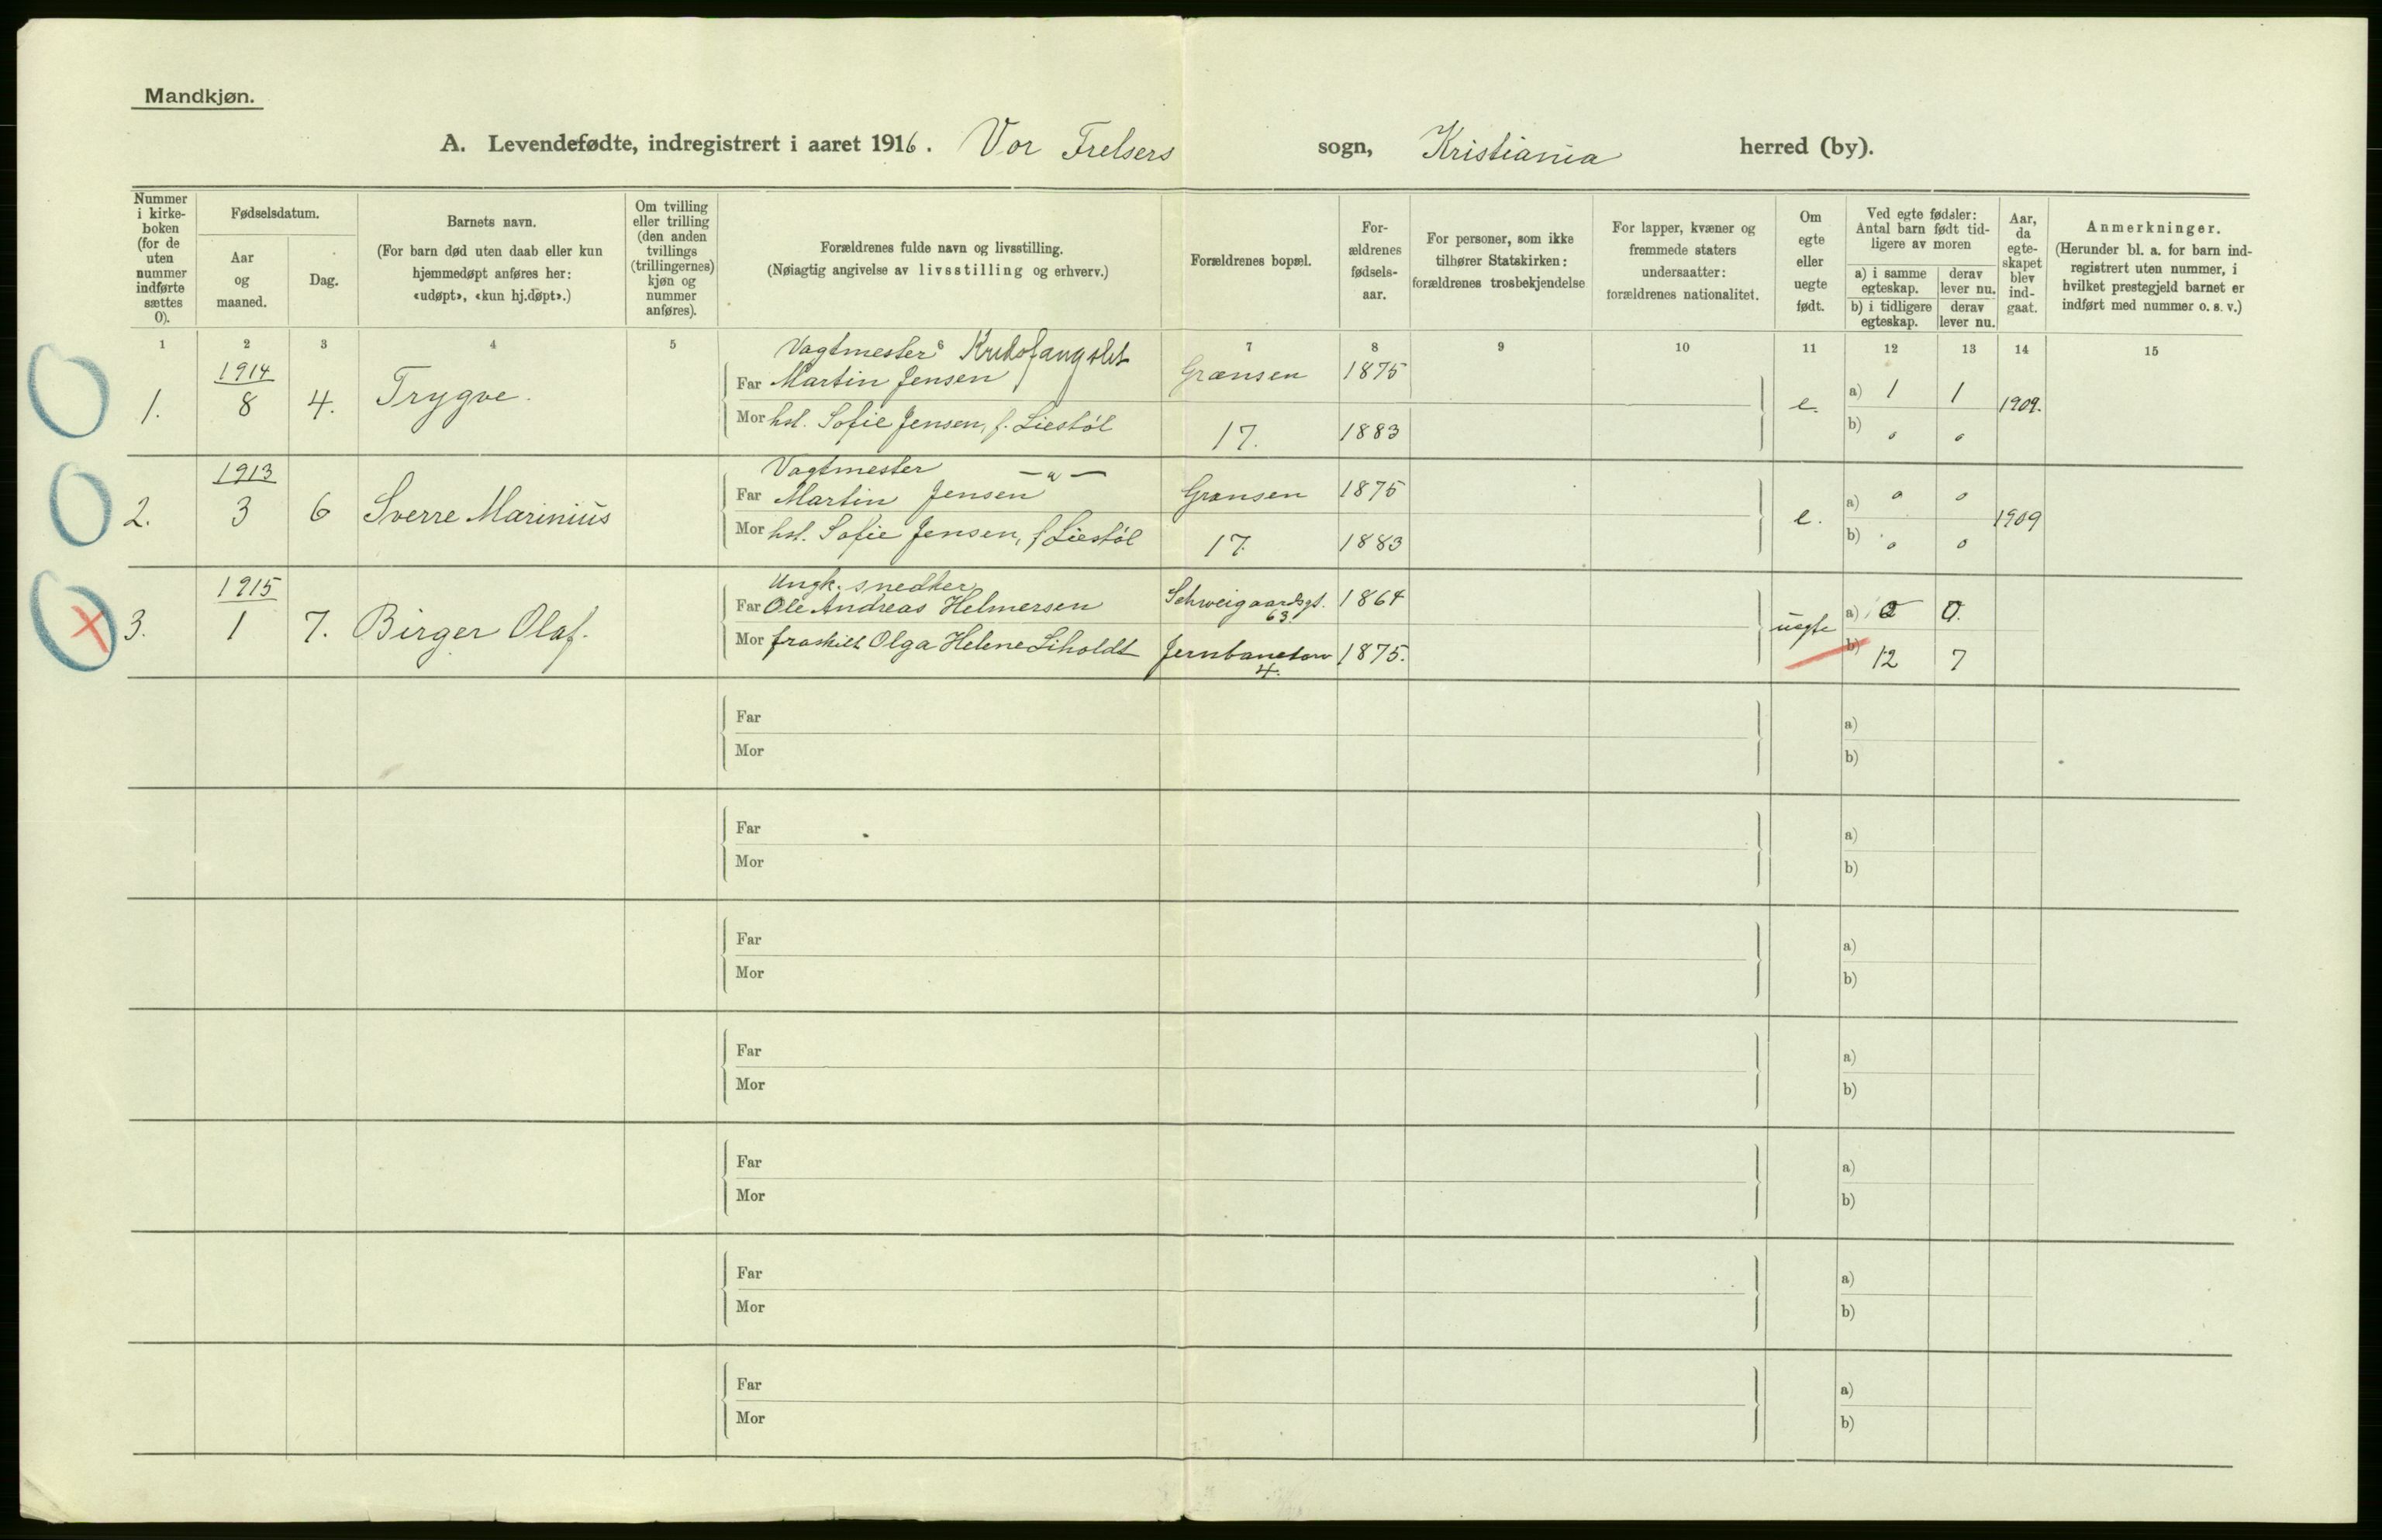 Mandkjøn.
A. Levendefødte, indregistrert i aaret 1916. Vor Frelsers sogn, Kristiania herred (by).
Nummer i kirke-boken (for de uten nummer indførte sættes 0).
Fødselsdatum.
Aar og maaned.
Dag.
Barnets navn.
(For barn død uten daab eller kun hjemmedøpt anføres her: «udøpt», «kun hj.døpt».)
Om tvilling eller trilling (den anden tvillings (trillingernes) kjøn og nummer anføres).
Forældrenes fulde navn og livsstilling.
(Nøiagtig angivelse av livsstilling og erhverv.)
Forældrenes bopæl.
For-ældrenes fødsels-aar.
For personer, som ikke tilhører Statskirken: forældrenes trosbekjendelse
For lapper, kvæner og fremmede staters undersaatter: forældrenes nationalitet.
Om egte eller uegte født.
Ved egte fødsler: Antal barn født tid-ligere av moren
a) i samme egteskap.
derav lever nu.
b) i tidligere egteskap.
derav lever nu.
Aar, da egte-skapet blev ind-gaat.
Anmerkninger.
(Herunder bl. a. for barn ind-registrert uten nummer, i hvilket prestegjeld barnet er indført med nummer o. s. v.)
1 2 3 4 5 6 7 8 9 10 11 12 13 14 15
Vagtmester
1914
1. 8 4. Trygve. Far Martin Jensen Grænsen 1875 e. a) 1 1 1909.
Mor hst. Sofie Jensen, f. Liestöl 17. 1883 b) 0 0
1913 Vagtmester —"—
2. 3 6 Sverre Marinius Far Martin Jensen Grænsen 1875 e. a) 0 0 1909
Mor hst. Sofie Jensen, f Liestöl 17. 1883 b) 0 0
1915 Ungk. snedker
3. 1 7. Birger Olaf. Far Ole Andreas Helmersen Schweigaardsgt. 63. 1864 uegte a) 0 0.
Mor fraskilt Olga Helene Liholdt Jernbanetorv 4. 1875. b) 12 7
Far a)
Mor b)
Far a)
Mor b)
Far a)
Mor b)
Far a)
Mor b)
Far a)
Mor b)
Far a)
Mor b)
Far a)
Mor b)